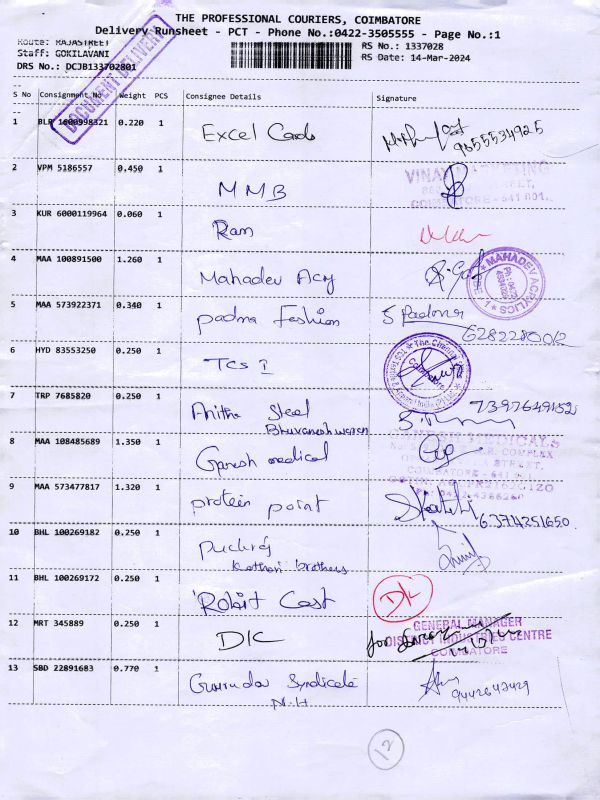 THE PROFESSIONAL COURIERS, COIMBATORE
Delivery Runsheet - PCT - Phone No.:0422-3505555 - Page No.:1
Route: RAJASTREET
Staff: GOKILAVANI
DRS No.: DCJB133702801
RS No.: 1337028
RS Date: 14-Mar-2024
DOCUMENT DELIVERY
S No Consignment No Weight PCS Consignee Details Signature
1 BLR 1600998321 0.220 1 Excel Cards 9655534925
2 VPM 5186557 0.450 1 MMB
3 KUR 6000119964 0.060 1 Ram
4 MAA 100891500 1.260 1 Mahadev Acry
MAHADEV ACRYLICS
5 MAA 573922371 0.340 1 padma Fashion S Padma
6282280012
6 HYD 83553250 0.250 1 TCS I
7 TRP 7685820 0.250 1 Anitha Steel 7397649152
Bhuvaneshwaran
8 MAA 108485689 1.350 1 Ganesh medical
GANESH MEDICALS
9 MAA 573477817 1.320 1 protein point 6374351650
10 BHL 100269182 0.250 1 Puckraj
Kothari brothers
11 BHL 100269172 0.250 1 Robit Cast
12 MRT 345889 0.250 1 DIC for
GENERAL MANAGER
DISTRICT INDUSTRIES CENTRE
COIMBATORE
13 SBD 22891683 0.770 1 Syndicate
N.H
9442642429
12